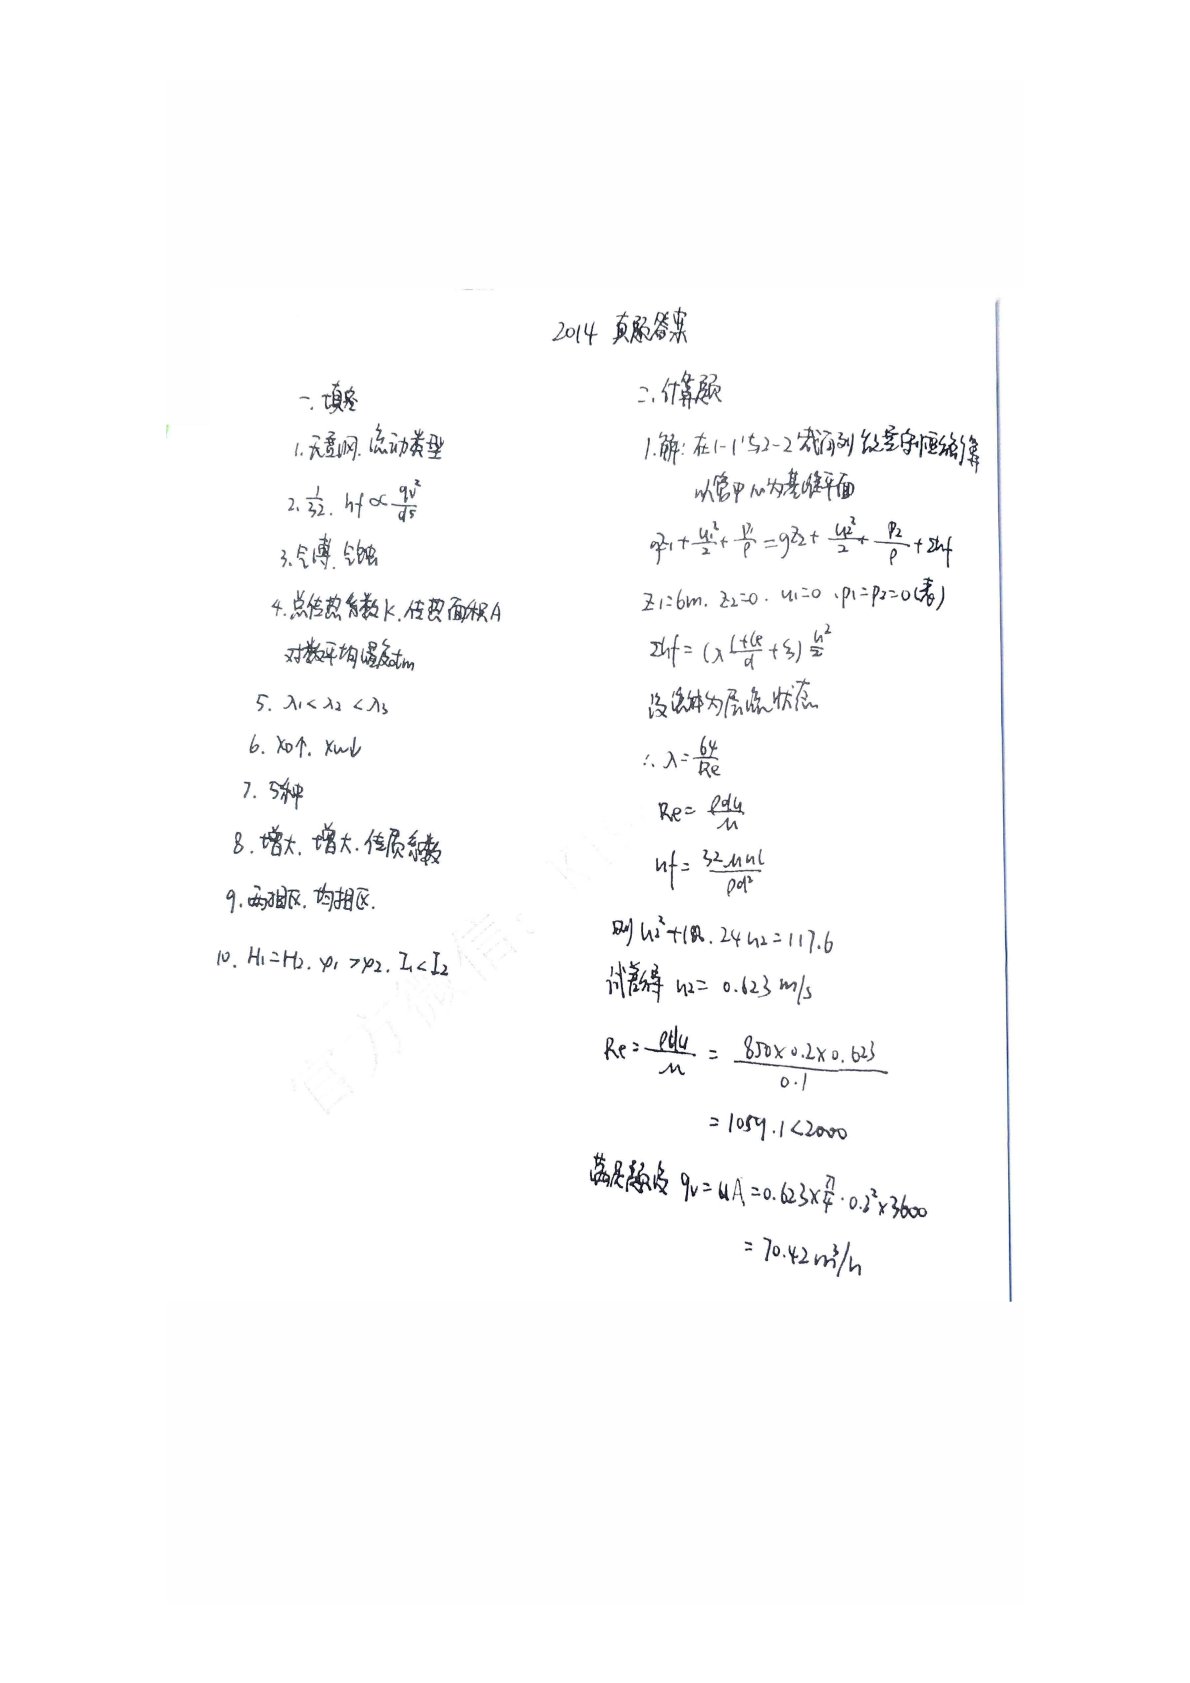 2014 真题答案
一. 填空
1. 无量纲. 流动类型
2. 1/32. hf ∝ qv²/d⁵
3. 气缚. 气蚀
4. 总传热系数K. 传热面积A
对数平均温度tm
5. λ1 < λ2 < λ3
6. xD↑. xw↓
7. 5种
8. 增大. 增大. 传质系数
9. 两相区. 均相区.
10. H1=H2. φ1>φ2. I1<I2
二. 计算题
1. 解: 在1-1'与2-2'截面列能量守恒
以管中心为基准平面
gz1 + u1²/2 + p1/ρ = gz2 + u2²/2 + p2/ρ + Σhf
z1=6m. z2=0. u1=0. p1=p2=0(表)
Σhf = (λ (l+le)/d + ξ) u²/2
设流体为层流状态
∴ λ = 64/Re
Re = ρdu/μ
hf = 32μul/ρd²
则 u2² + .24u2 = 117.6
试差得 u2 = 0.623 m/s
Re = ρdu/μ = 850×0.2×0.623/0.1
= 1059.1<2000
满足假设 qv = uA = 0.623×π/4·0.2²×3600
= 70.42 m³/h
官方微信: